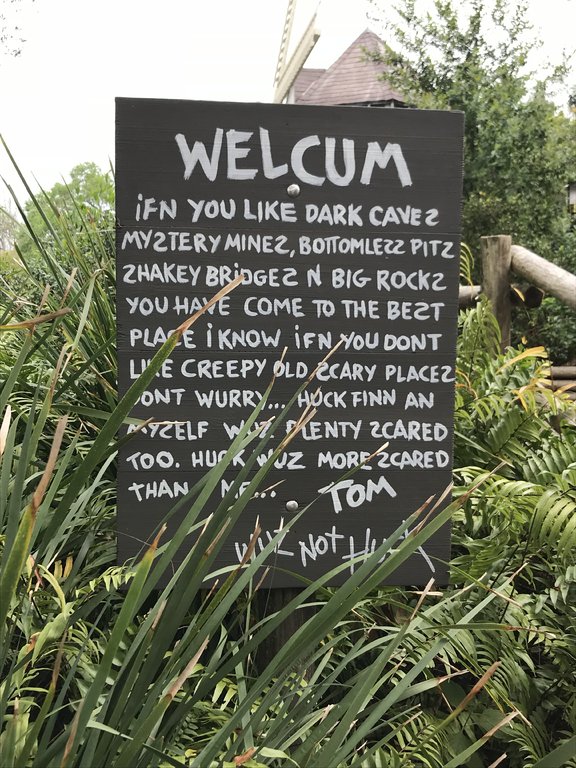 WELCUM
iFN YOU LIKE DARK CAVES
MYSTERY MINES, BOTTOMLESS PITS
SHAKEY BRiDGES N BIG ROCKS
YOU HAVE COME TO THE BEST
PLACE i KNOW iFN YOU DONT
LIKE CREEPY OLD SCARY PLACES
DONT WURRY... HUCK FINN AN
MYSELF WUZ PLENTY SCARED
TOO. HUCK WUZ MORE SCARED
THAN ME... TOM
WUZ NOT HUCK